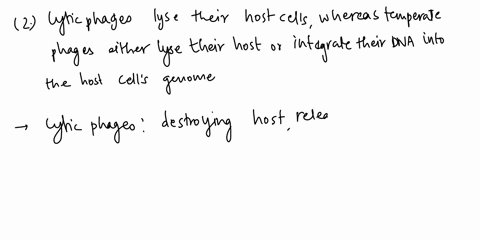 (2.) Lytic phages lyse their host cells, whereas temperate
phages either lyse their host or integrate their DNA into
the host cell's genome
→ Lytic phages: destroying host, relea